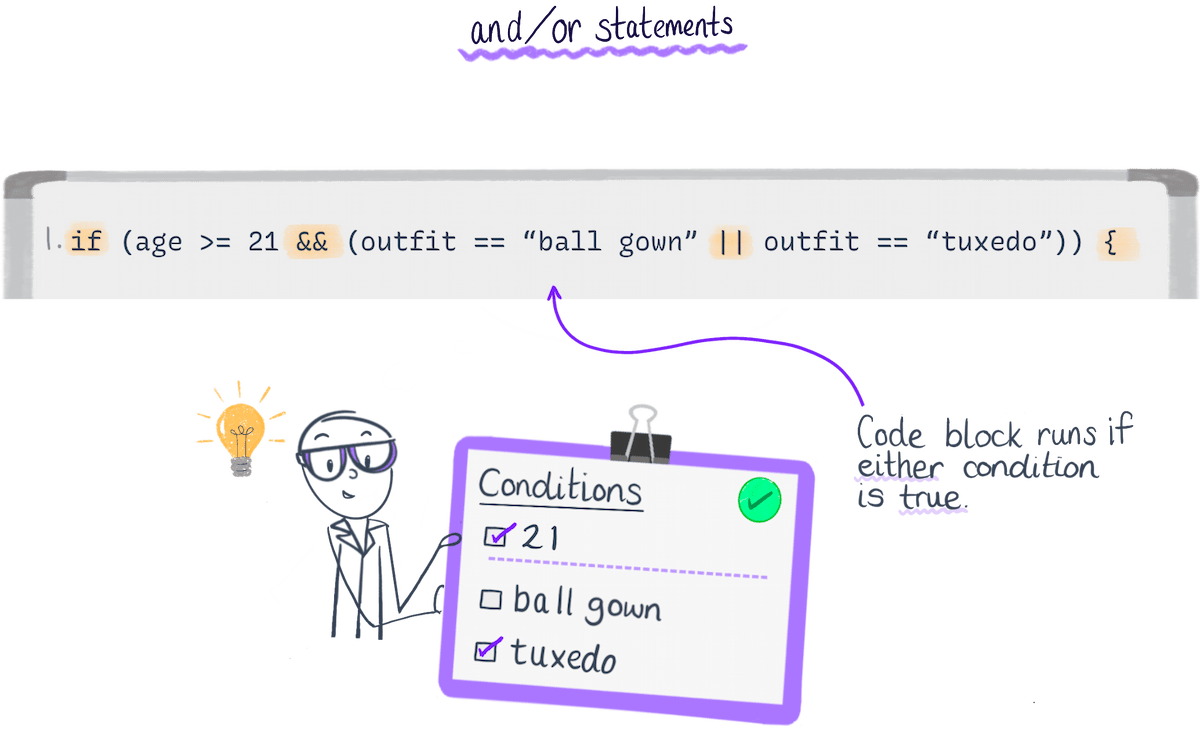 and/or statements
1. if (age >= 21 && (outfit == “ball gown” || outfit == “tuxedo”)) {
Code block runs if
either condition
is true.
Conditions
21
ball gown
tuxedo